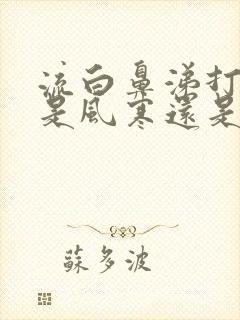 流白鼻涕打
是風寒還是
蘇多波